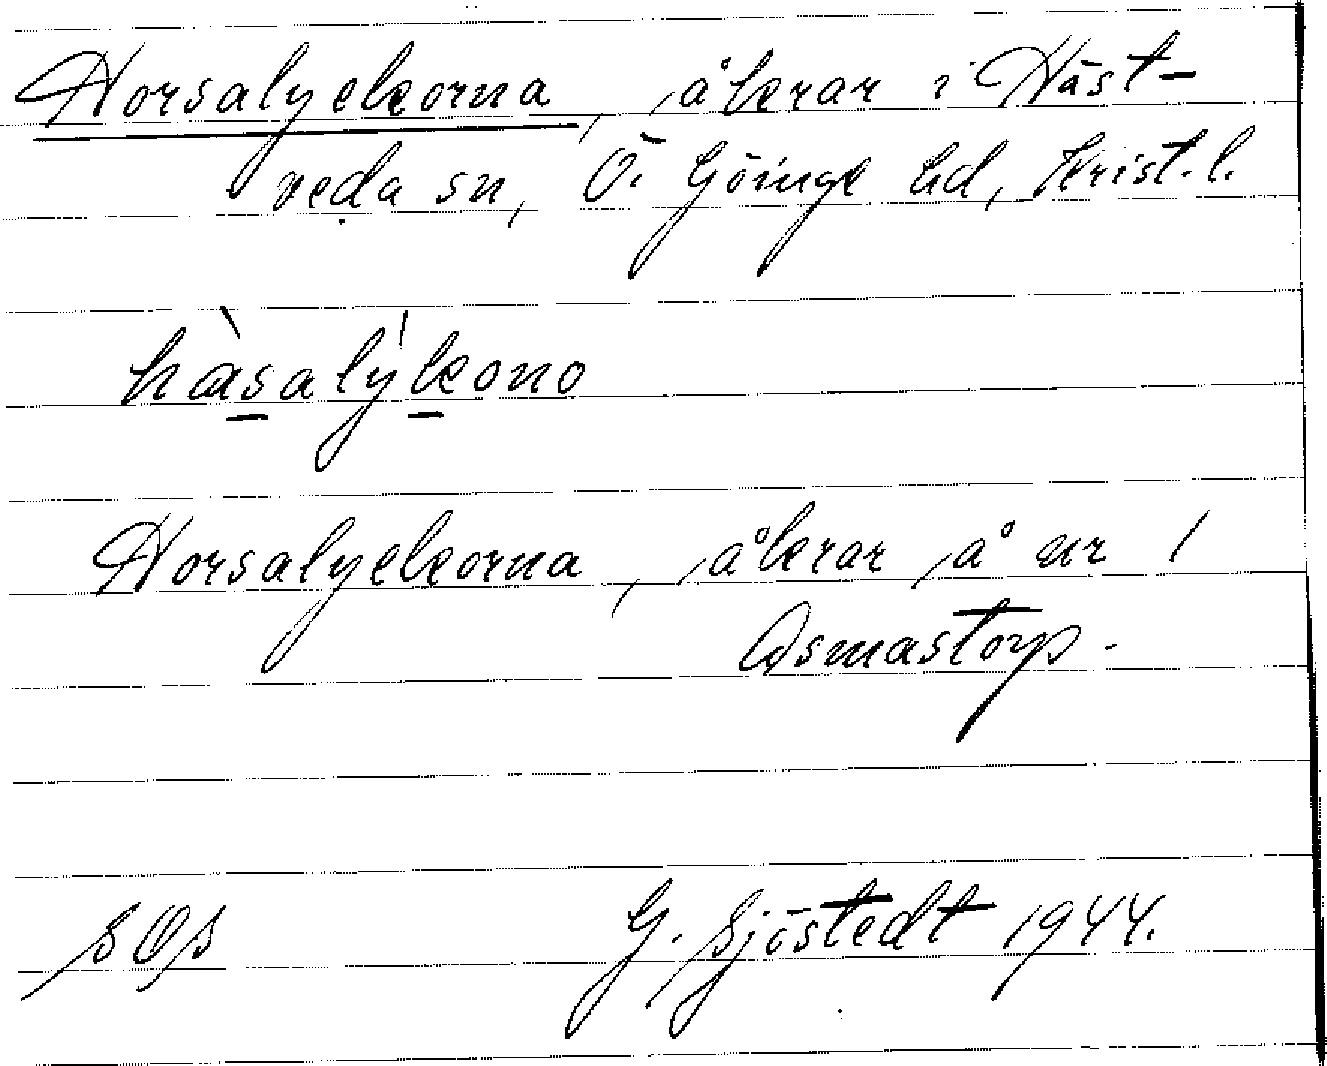 Horsalyckorna, åkrar i Häst-
veda sn, Ö. Göinge hd, Krist. l.
hàsalýkono
Horsalyckorna, åkrar å nr 1
Asmastorp.
G. Sjöstedt 1944.